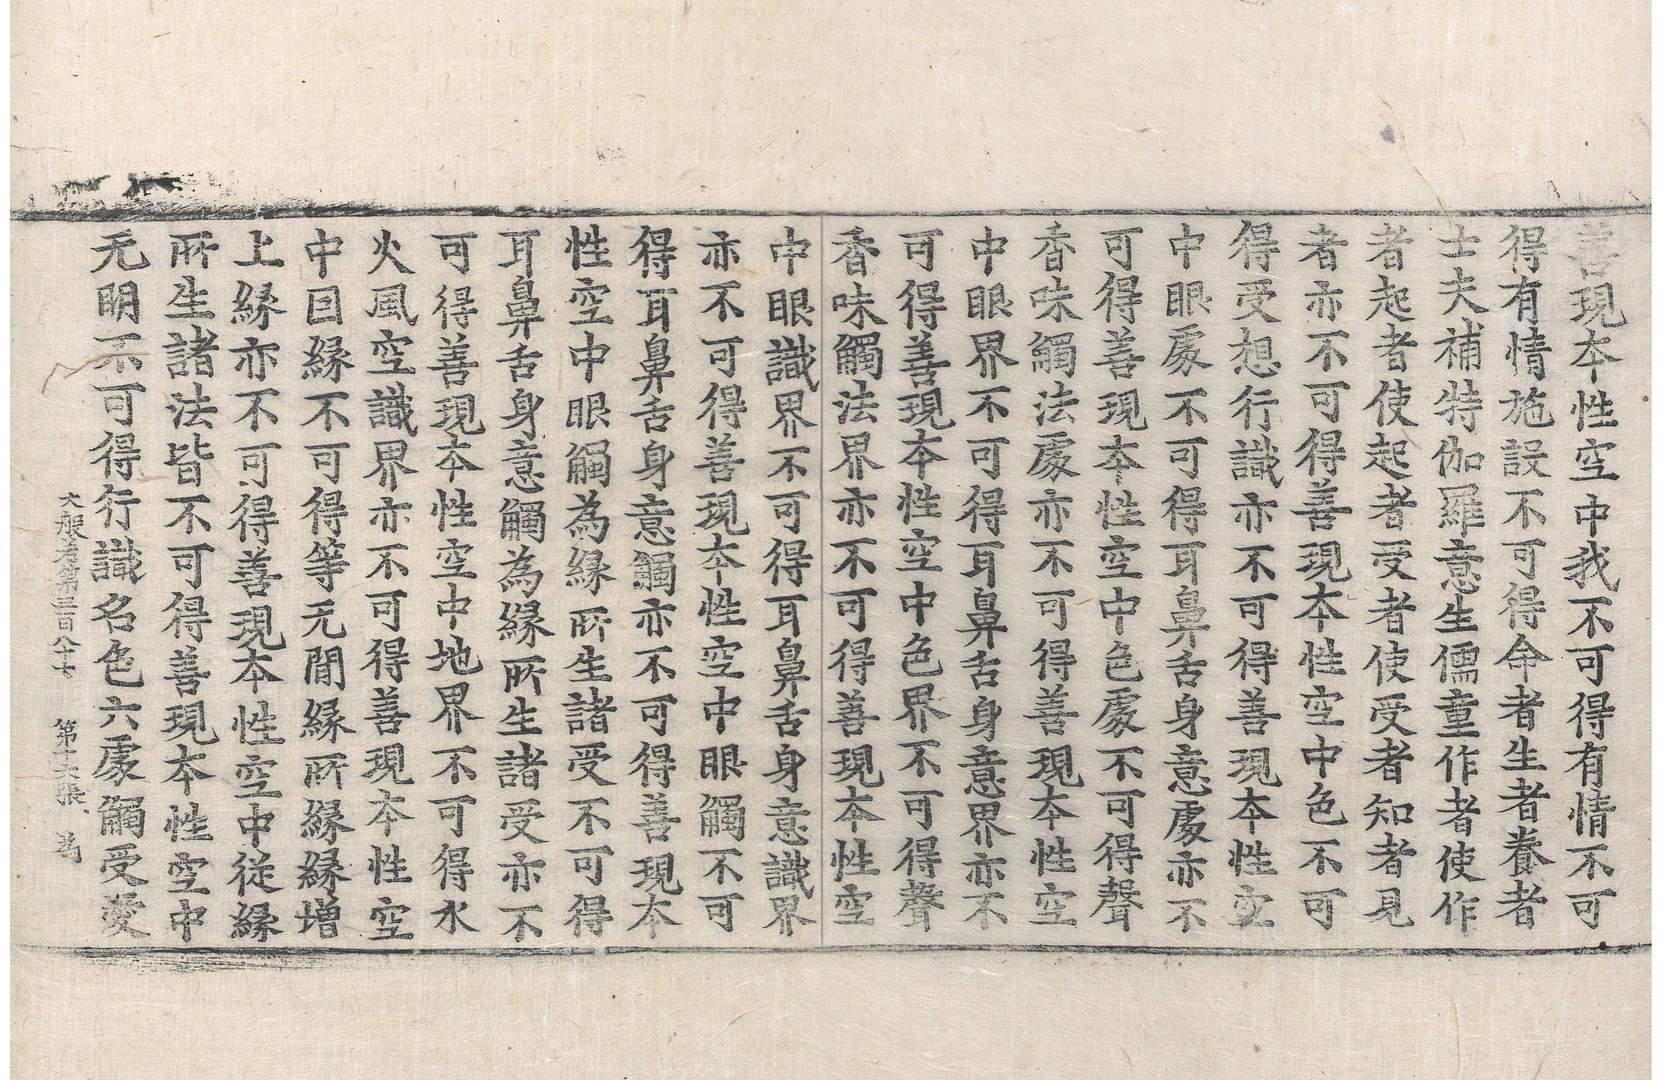 善現本性空中我不可得有情不可
得有情施設不可得命者生者養者
士夫補特伽羅意生儒童作者使作
者起者使起者受者使受者知者見
者亦不可得善現本性空中色不可
得受想行識亦不可得善現本性空
中眼處不可得耳鼻舌身意處亦不
可得善現本性空中色處不可得聲
香味觸法處亦不可得善現本性空
中眼界不可得耳鼻舌身意界亦不
可得善現本性空中色界不可得聲
香味觸法界亦不可得善現本性空
中眼識界不可得耳鼻舌身意識界
亦不可得善現本性空中眼觸不可
得耳鼻舌身意觸亦不可得善現本
性空中眼觸為緣所生諸受不可得
耳鼻舌身意觸為緣所生諸受亦不
可得善現本性空中地界不可得水
火風空識界亦不可得善現本性空
中因緣不可得等无間緣所緣緣增
上緣亦不可得善現本性空中從緣
所生諸法皆不可得善現本性空中
无明不可得行識名色六處觸受愛
大般若第三百八十七 第十六張 為